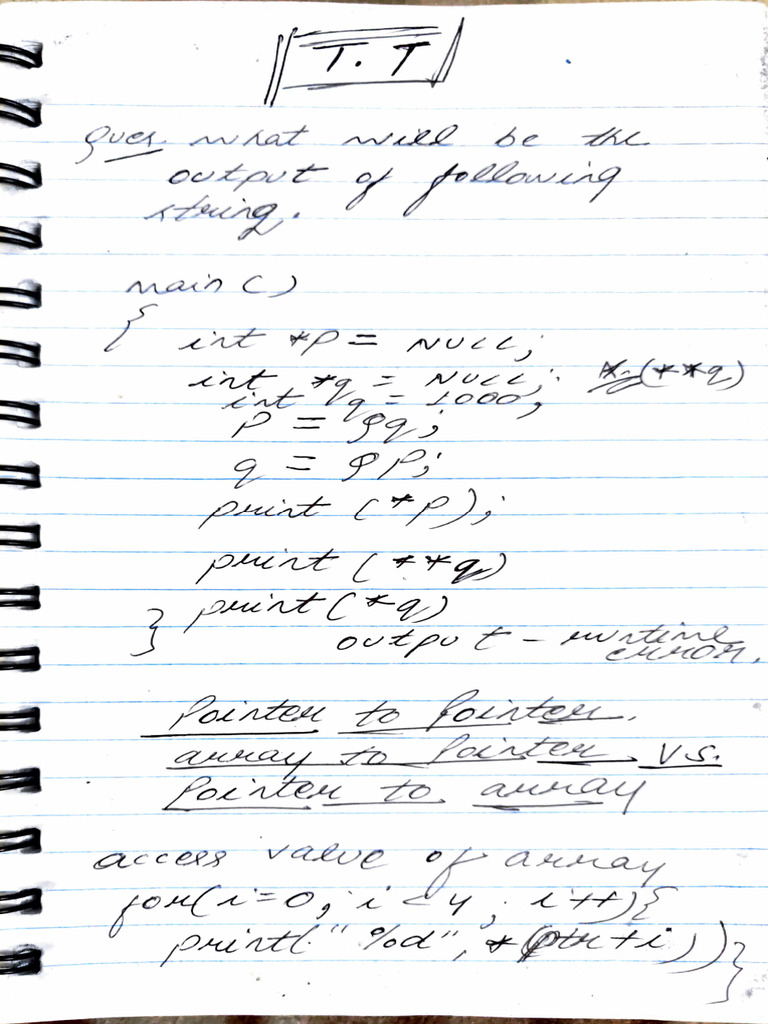 T. T
Ques. what will be the
output of following
string.
main ( )
{ int *p = NULL;
int *q = NULL; (**q)
int q = 1000;
p = &q;
q = &p;
print (*p);
print (**q)
print (*q)
} output - runtime
error.
Pointer to Pointer.
array to Pointer vs.
Pointer to array
access value of array
for(i=0; i<4; i++){
print(" %d", *(ptr+i))}